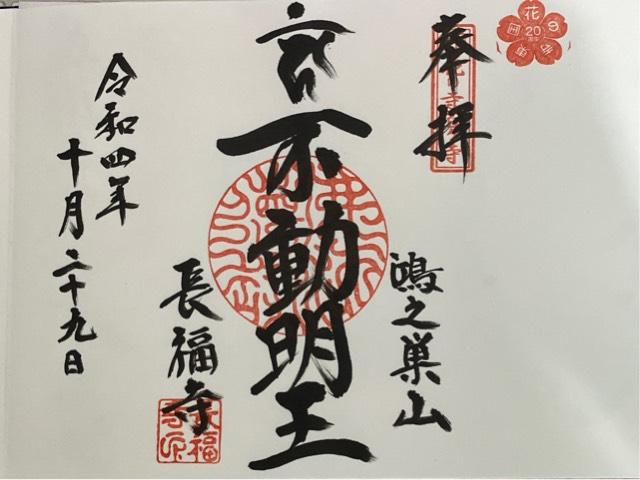 奉拝
鴻之巣山
不動明王
長福寺
令和四年
十月二十九日
花
20